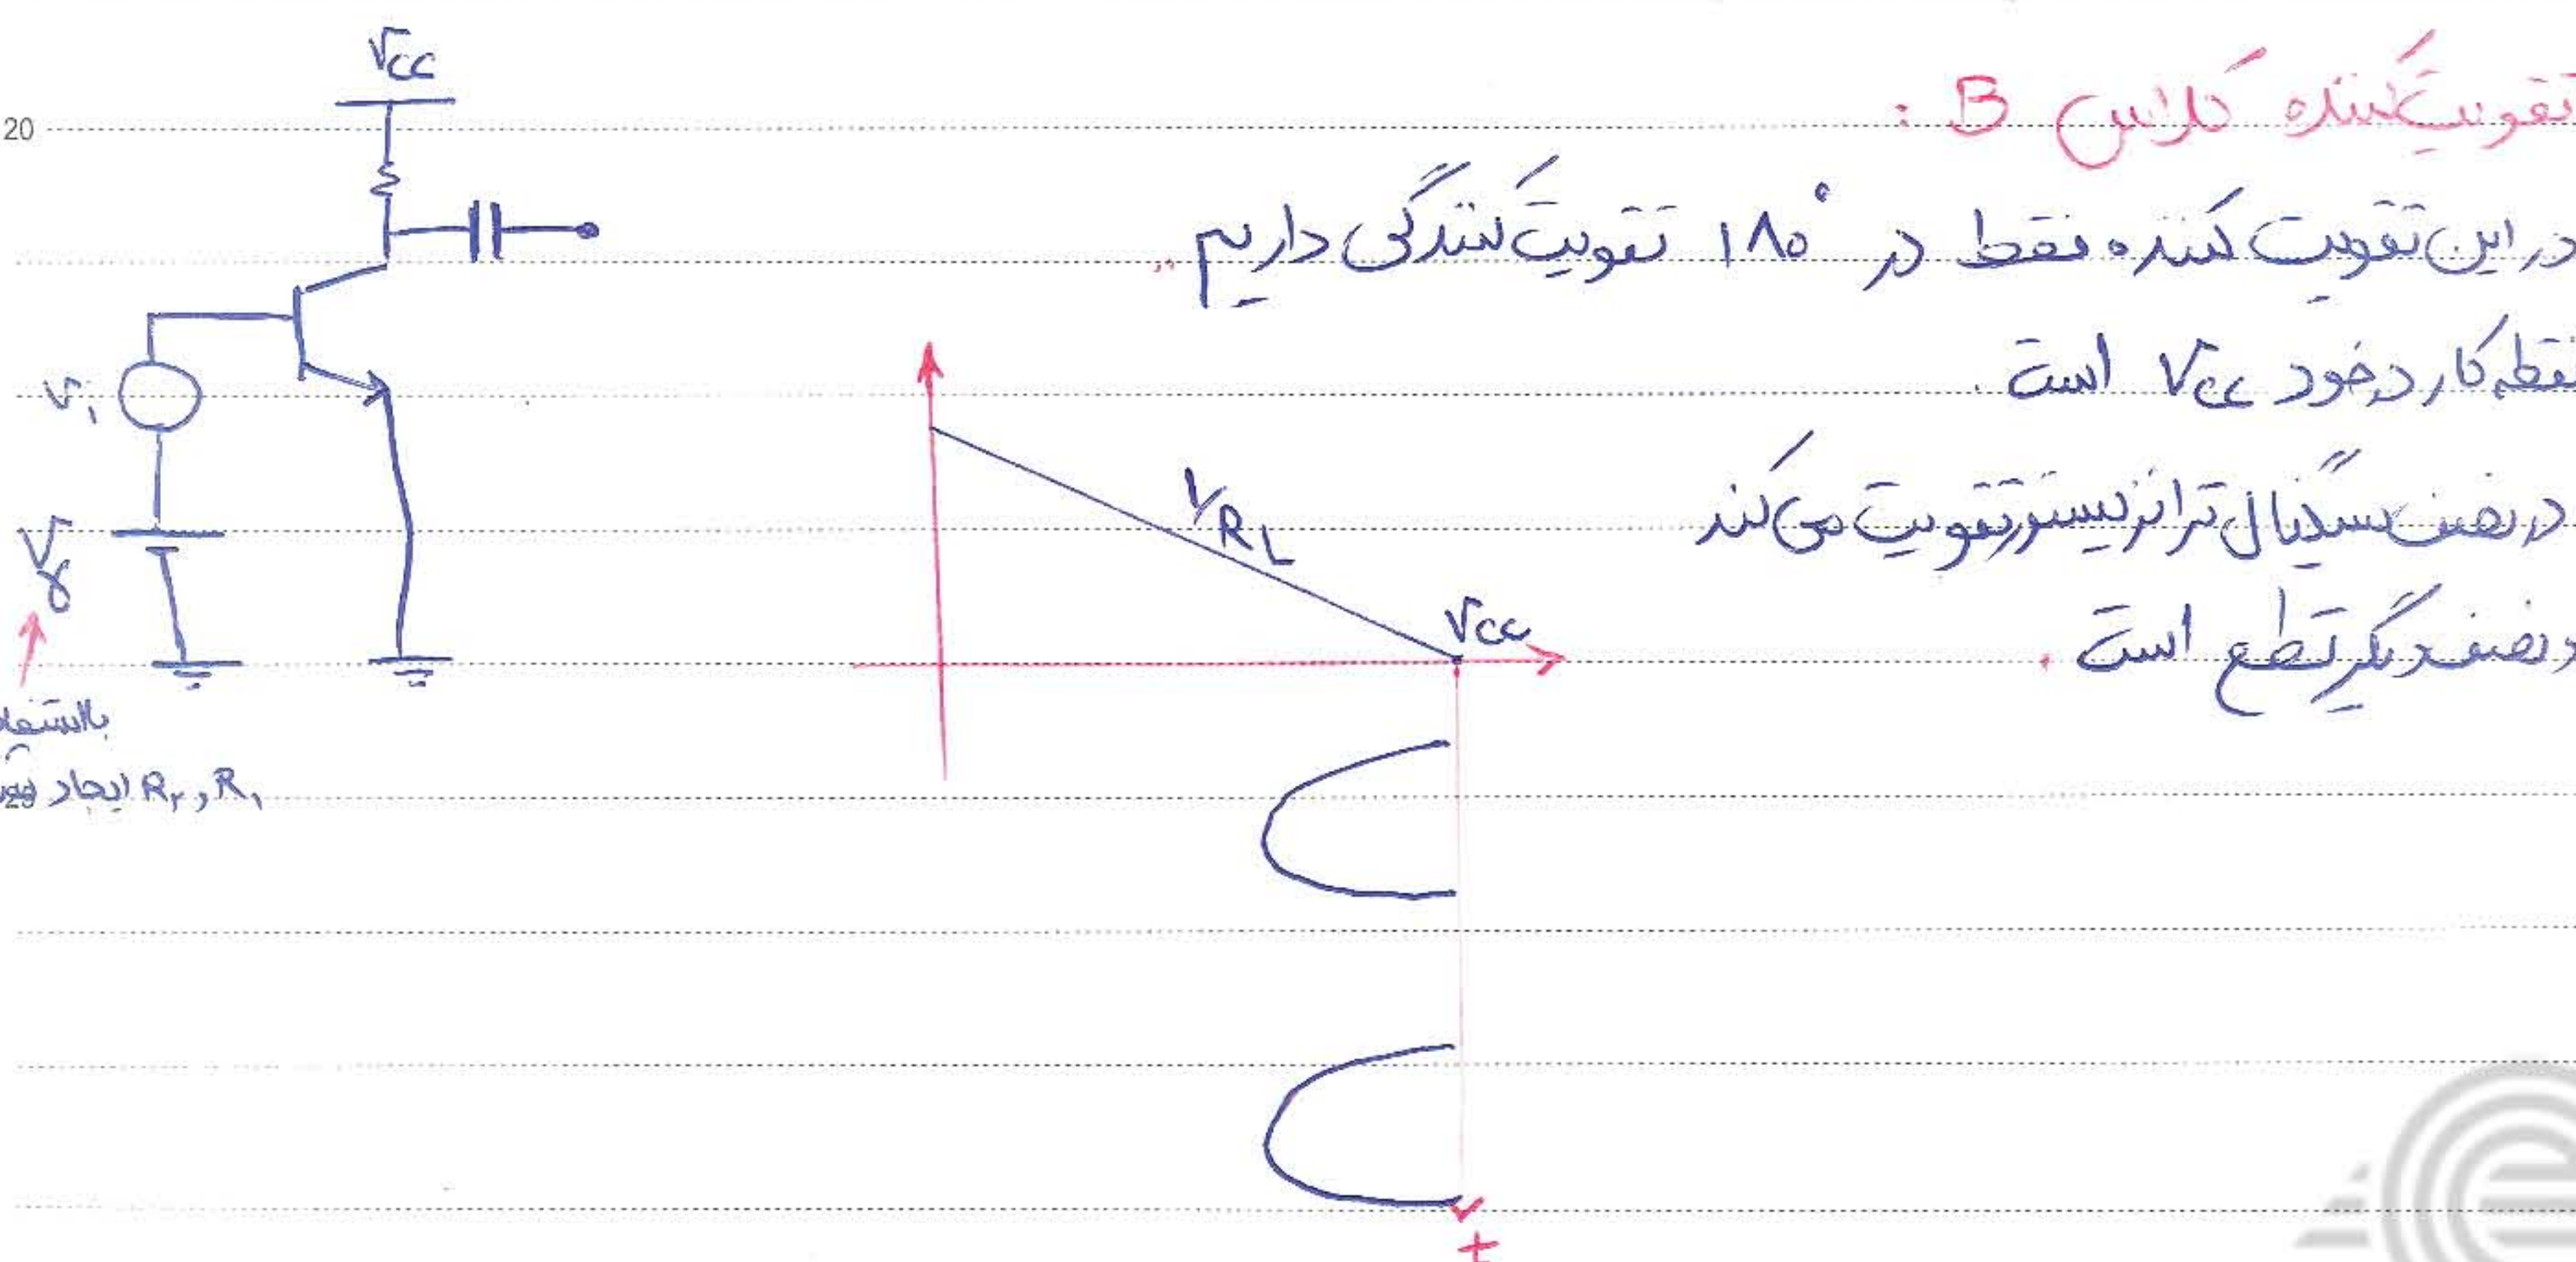 تقویت‌کننده کلاس B :
در این تقویت کننده فقط در ۱۸۰° تقویت‌کنندگی داریم
نقطه کار در خود Vcc است .
در نصف سیگنال ترانزیستور تقویت می‌کند
و نصف دیگر قطع است .
20
Vcc
Vi
Vγ
R₂ و R₁ ایجاد
1/RL
Vcc
t